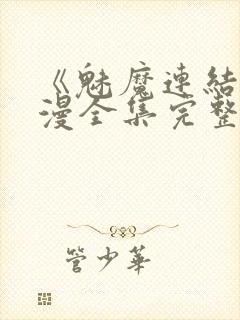 《魅魔連結
漫全集完整
管少華